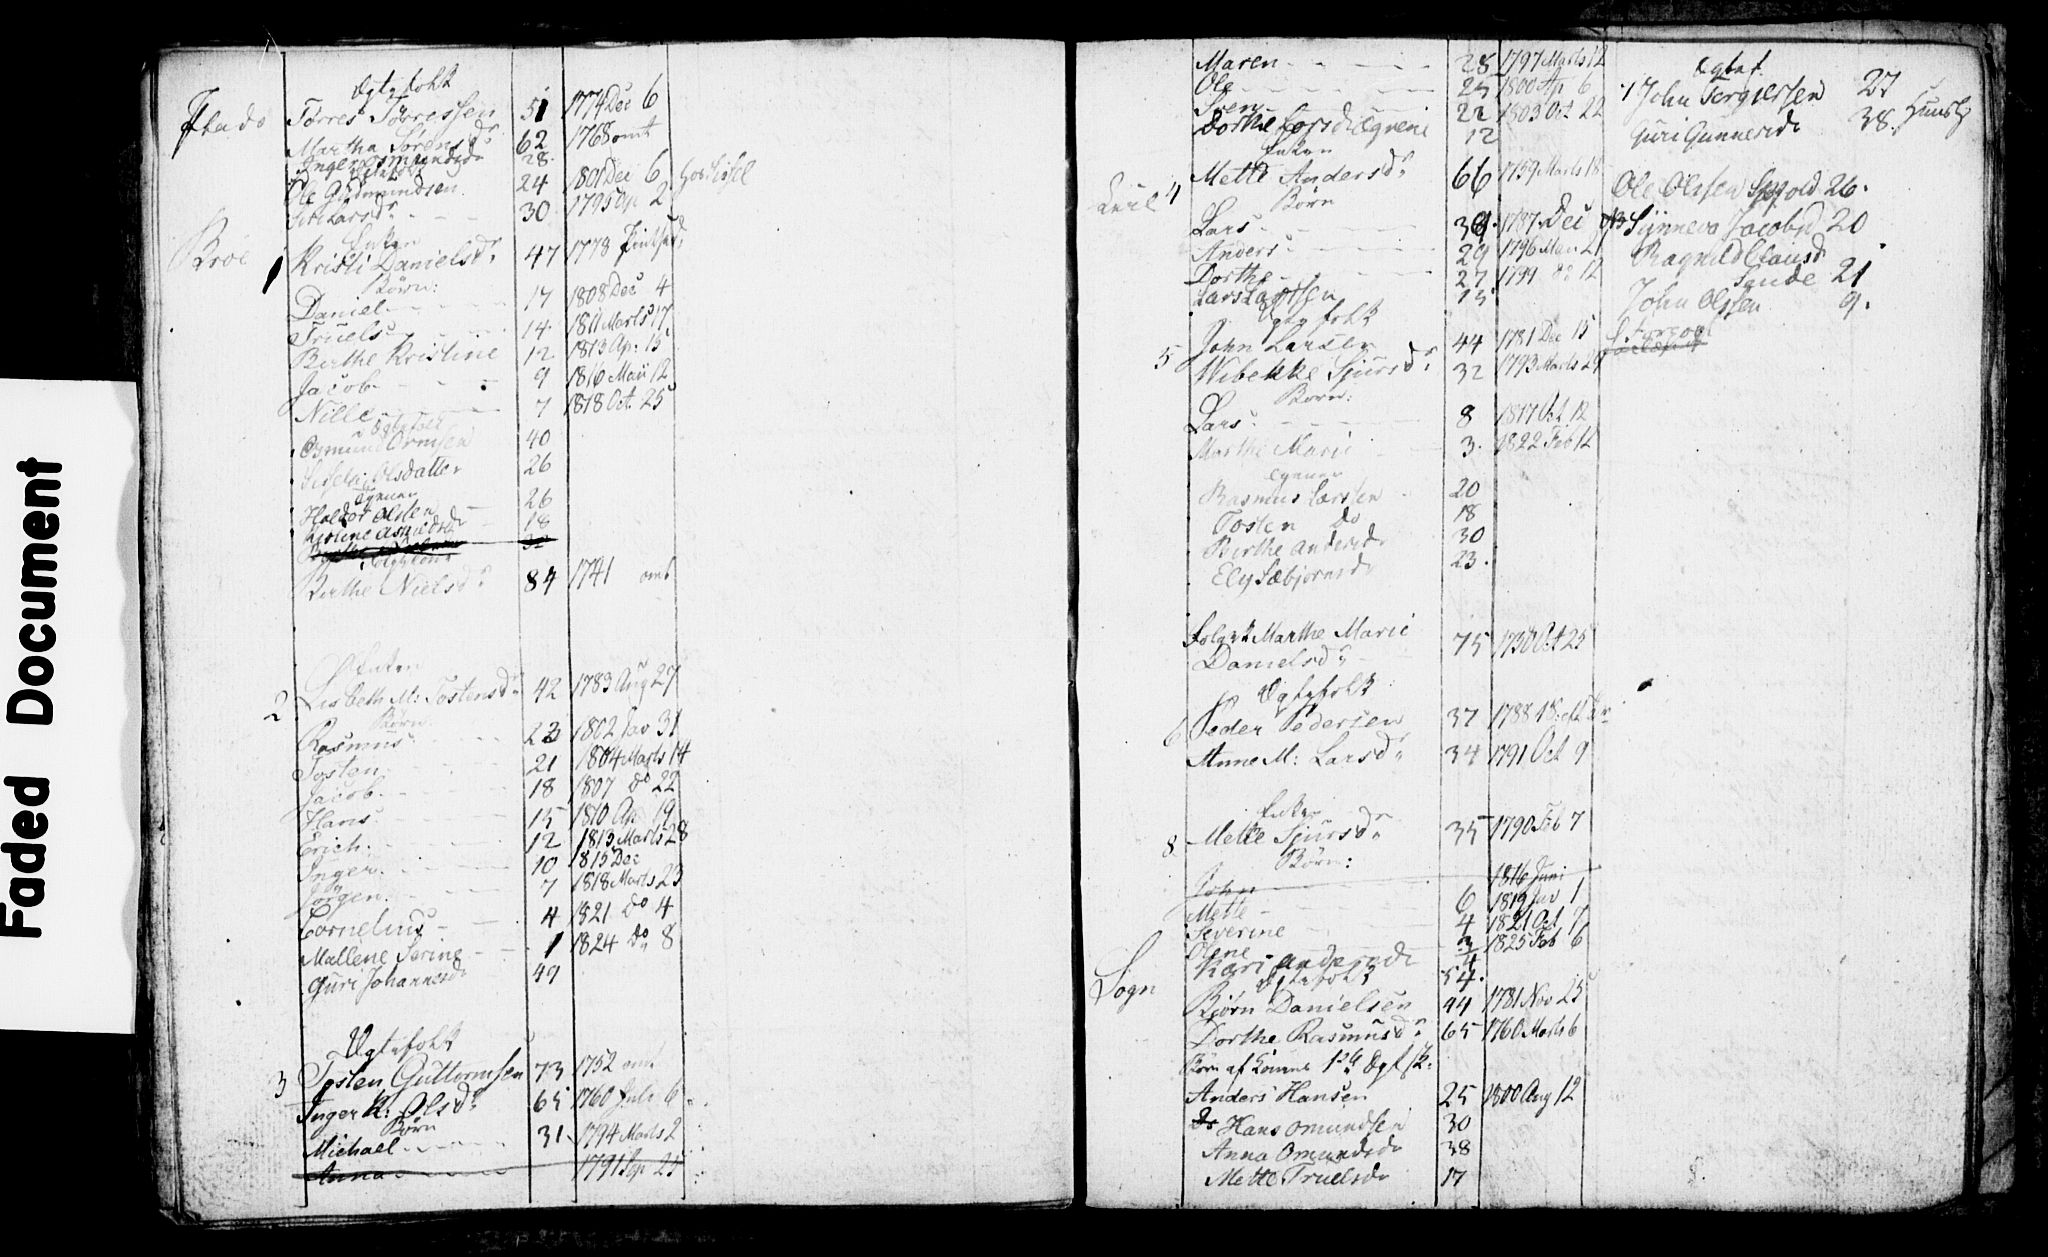 Faded Document
Ægtefolk
Torres Torressen 51 1774 Dec 6
Martha Sørensdr 62 1768 omt
28
Ole Gudmundsen 24 1801 Dec 6
Larsdr 30 1795 Ap 2
Broe Enken
1 Kristi Danielsdr 47 1778
Børn:
Daniel 17 1808 Dec 4
Truels 14 1811 Marts 17
Berthe Kristine 12 1813 Ap: 15
Jacob 9 1816 Maii 12
Nille 7 1818 Oct. 25
Ægtefolk
Ormsen 40
Olsdatter 26
Tyener
Holdor Olsen 26
18
32
Berthe Nielsdr 84 1741 omt
Enken
2 Lisbeth M: Tostensdr 42 1783 Aug 27
Børn
Rasmus 23 1802 Jav 31
Tosten 21 1804 Marts 14
Jacob 18 1807 do 22
Hans 15 1810 Ap 19
Erich 12 1813 Marts 28
Inger 10 1815 Dec
Jørgen 7 1818 Marts 23
Cornelius 4 1821 do 4
Mallene Serine 1 1824 do 8
Guri Johannesdr 49
Ægtefolk
3 Tosten Guttormsen 73 1752 omt
Inger K: Olsdr 65 1760 Juli 6
Børn
Michael 31 1794 Marts 2
Anna 1791 Sep 25
Maren 28 1797 Marts 12
Ole 25 1800 Ap 6
Sven 22 1803 Oct 22
Dorthe 12
Enken
4 Mette Andersdr 66 1759 Marts 18
Børn
Lars 38 1787 Dec
Anders 29 1796 Marts
Dorthe 27 1799 do 12
Lars Larsen 15
Ægtefolk
5 John Larsen 44 1781 Dec 15
Wibekke Sjursdr 32 1793 Marts 29
Børn:
Lars 8 1817 Oct 12
Marthe Marie 3 1822 Feb 12
Tyener
Rasmus Larsen 20
Tosten do 18
Berthe Andersdr 30
Ely Sæbjornsdr 23
Folgek Marthe Marie
Danielsdr 75 1750 Oct 25
Ægtefolk
6 Peder Pedersen 37 1788
Anne M: Larsdr 34 1791 Oct 9
Enken
8 Mette Sjursdr 35 1790 Feb 7
Børn:
John 1816 Juni
Mette 6 1819 Jav 1
Severine 4 1821 Oct 7
Olene 3/4 1825 Feb 6
Kari Andersdr 54
Sogn Ægtefolk
Bjørn Danielsen 44 1781 Nov 25
Dorthe Rasmusdr 65 1760 Marts 6
Børn af Konens 1ste Ægtsk:
Anders Hansen 25 1800 Aug 12
Hans Omundsen 30
Anna Omundsdr 38
Mette Truelsdr 17
Ægtef.
John Tergiersen 27
Guri Gunnersdr 38
Ole Olssen 26
Synneva Jacobsd 20
Ragnild Clausd
Sande 21
John Olssen 9